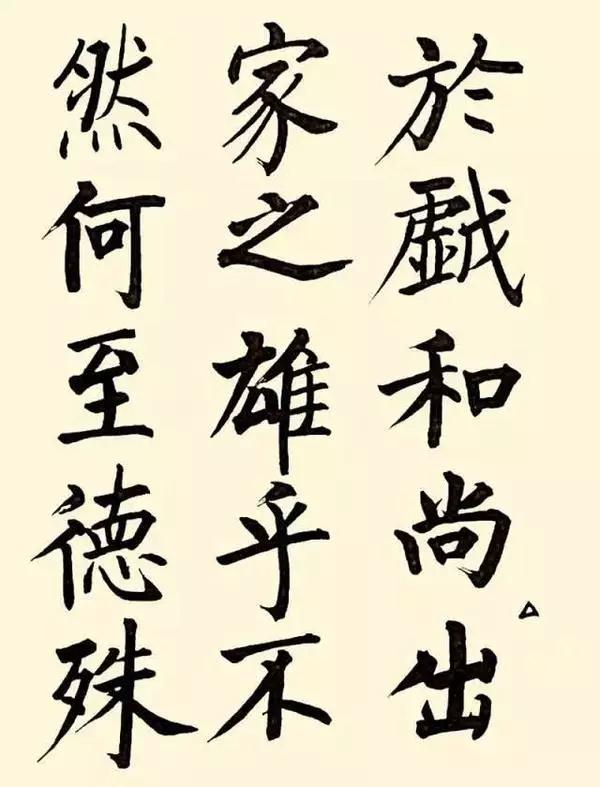 於戯和尚出
家之雄乎不
然何至德殊